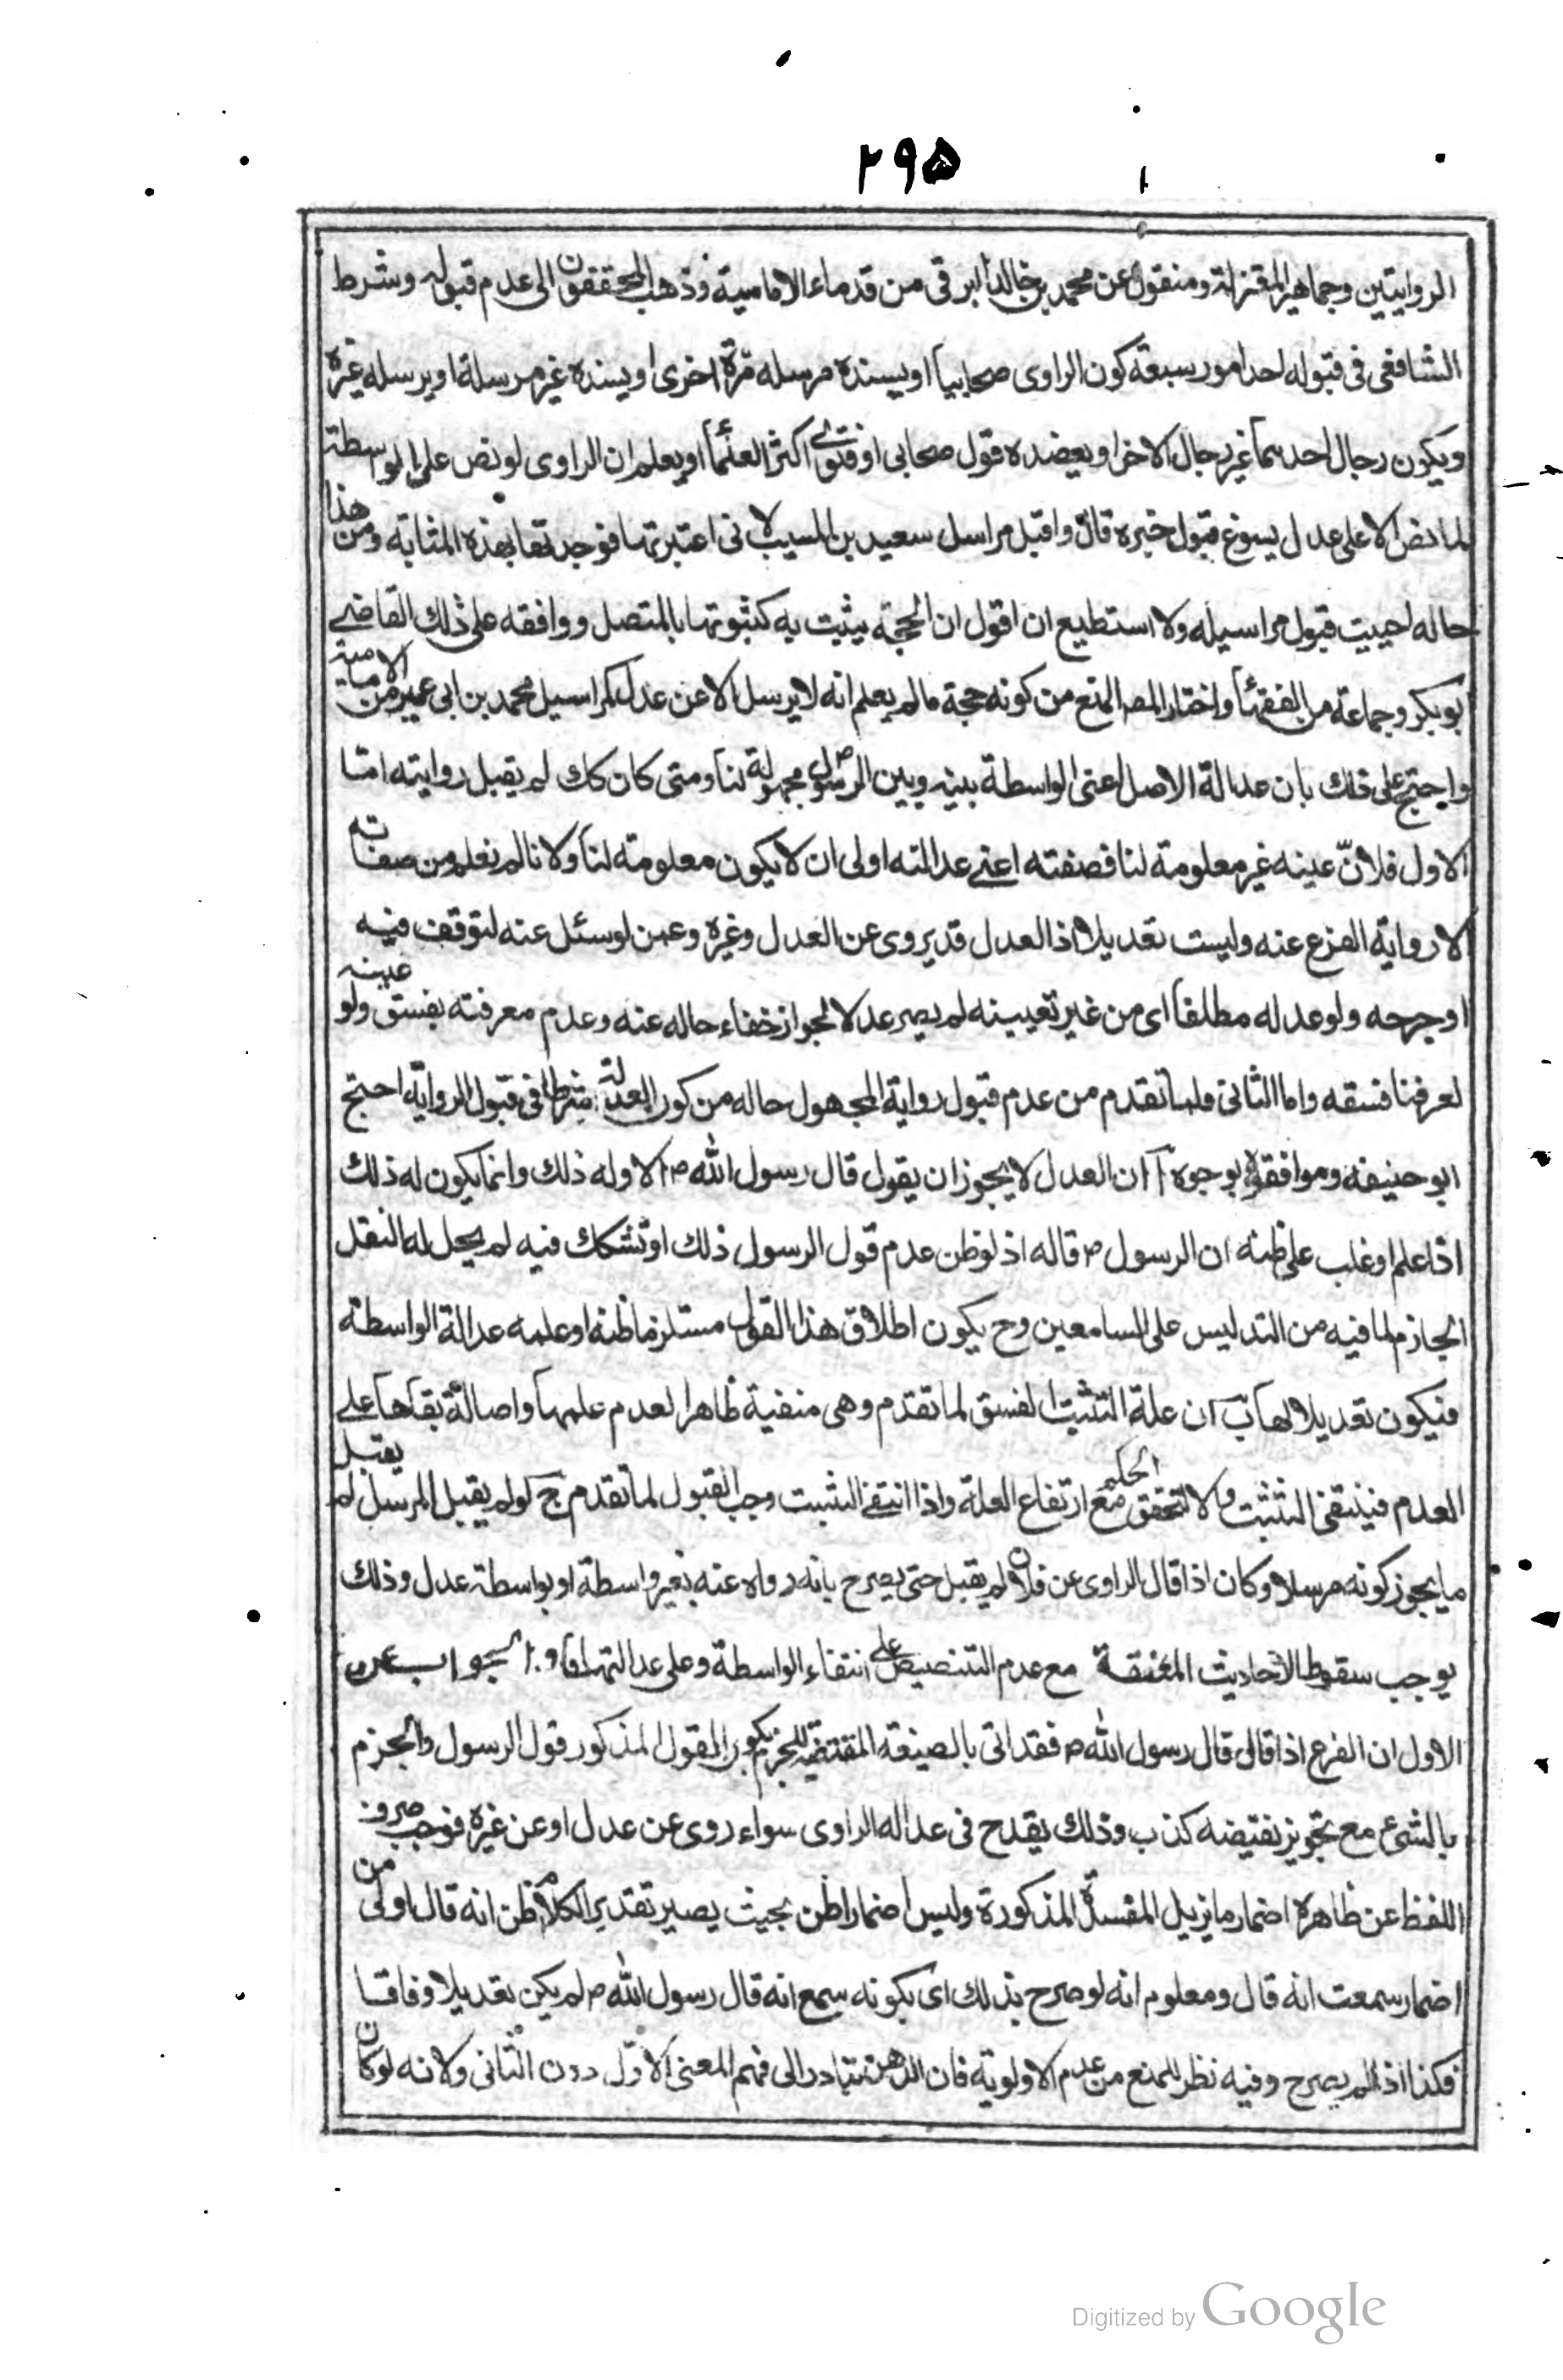 ٢٩٥
الروايتين وجماهير المعتزلة ومنقول عن محمد بن خالد البرقى من قدماء الامامية وذهب المحققون الى عدم قبوله وشرط
الشافعى فى قبوله احد امور سبعة كون الراوى صحابيا او يسنده مرسله مرة اخرى او يسنده غير مرسله او يرسله غيره
ويكون رجال احدهما غير رجال الاخر او يعضده قول صحابى او فتوى اكثر العلماء او يعلم ان الراوى لو نص على الواسطة
لما نص الا على عدل يسوغ قبول خبره قال واقبل مراسل سعيد بن المسيب لانى اعتبرتها فوجدتها بهذه المثابة ومن هذا
حاله احببت قبول مراسيله ولا استطيع ان اقول ان الحجة يثبت به كثبوتها بالمتصل ووافقه على ذلك القاضى
ابو بكر وجماعة من الفقهاء واختار المصـ المنع من كونه حجة ما لم يعلم انه لا يرسل الا عن عدل كمراسيل محمد بن ابى عمير من الامامية
واحتج على ذلك بان عدالة الاصل اعنى الواسطة بينه وبين الرسول ص مجهولة لنا ومتى كان كك لم يقبل روايته اما
الاول فلانّ عينه غير معلومة لنا فصفته اعنى عدالته اولى ان لا يكون معلومة لنا ولانا لم نعلم من صفاته
الا رواية الفرع عنه وليست تعديلا اذ العدل قد يروى عن العدل وغيره وعمن لو سئل عنه لتوقف فيه
او جرحه ولو عدله مطلقا اى من غير تعيينه لم يصر عدلا لجواز خفاء حاله عنه وعدم معرفته بفسق ولو عينه
لعرفنا فسقه واما الثانى فلما تقدم من عدم قبول رواية المجهول حاله من كون العدالة شرطا فى قبول الرواية احتج
ابو حنيفه وموافقوه بوجوه آ ان العدل لا يجوز ان يقول قال رسول الله ص الا وله ذلك وانما يكون له ذلك
اذا علم او غلب على ظنه ان الرسول ص قاله اذ لو ظن عدم قول الرسول ذلك او تشكك فيه لم يحل له النقل
الجازم لما فيه من التدليس على السامعين وح يكون اطلاق هذا القول مستلزما ظنه او علمه عدالة الواسطة
فيكون تعديلا لها ب ان علة التثبت الفسق لما تقدم وهى منفية ظاهرا لعدم علمها واصالة بقاءها على
العدم فينتفى التثبت والا لتحقق الحكم مع ارتفاع العلة واذا انتفى التثبت وجب القبول لما تقدم ج لو لم يقبل المرسل لم يقبل
ما يجوز كونه مرسلا وكان اذا قال الراوى عن فلان لم يقبل حتى يصرح بانه رواه عنه بغير واسطة او بواسطة عدل وذلك
يوجب سقوط الاحاديث المعنعنة مع عدم التنصيص على انتفاء الواسطة وعلى عدالتها و الجواب عن
الاول ان الفرع اذا قال قال رسول الله ص فقد اتى بالصيغة المقتضية للجزم بكون المقول المذكور قول الرسول والجزم
بالشىء مع تجويز نقيضه كذب وذلك يقدح فى عدالة الراوى سواء روى عن عدل او عن غيره فوجب صرف
اللفظ عن ظاهره اضمار ما يزيل المفسدة المذكورة وليس اضمار اظن بحيث يصير تقدير الكلام ظن انه قال اولى من
اضمار سمعت انه قال ومعلوم انه لو صرح بذلك اى بكونه سمع انه قال رسول الله ص لم يكن تعديلا وفاقا
فكذا اذا لم يصرح وفيه نظر للمنع من عدم الاولوية فان الذهن يتبادر الى فهم المعنى الاوّل دون الثانى ولانه لو كان
Digitized by Google